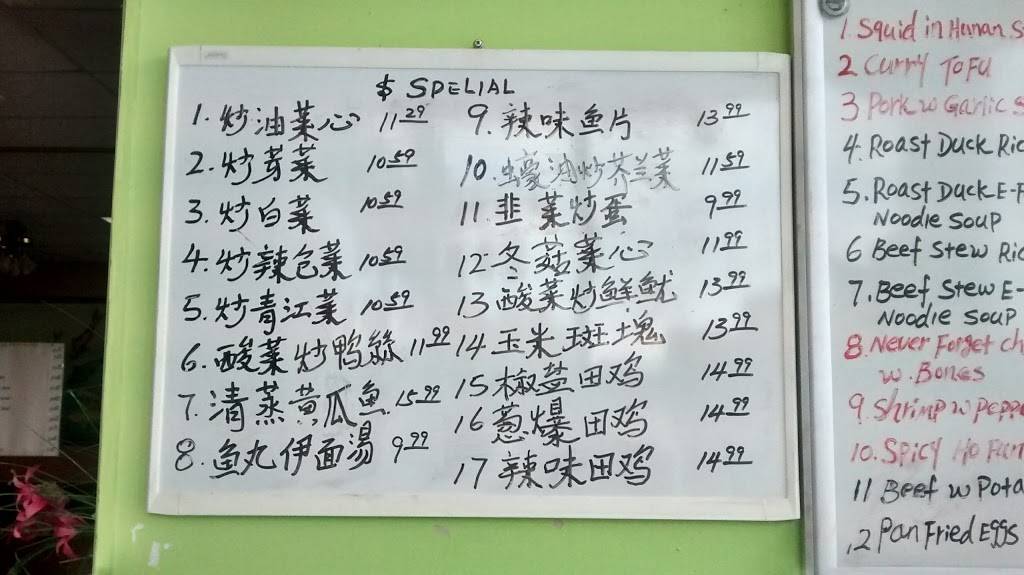 $ SPELIAL
1. 炒油菜心 11.29
2. 炒芽菜 10.59
3. 炒白菜 10.59
4. 炒辣包菜 10.59
5. 炒青江菜 10.59
6. 酸菜炒鴨絲 11.99
7. 清蒸黄瓜魚 15.99
8. 鱼丸伊面湯 9.99
9. 辣味鱼片 13.99
10. 蠔油炒芥兰菜 11.59
11. 韭菜炒蛋 9.99
12. 冬菇菜心 11.99
13 酸菜炒鲜鱿 13.99
14 玉米斑塊 13.99
15 椒盐田鸡 14.99
16 葱爆田鸡 14.99
17 辣味田鸡 14.99
1. Squid in Hunan S
2 Curry ToFu
3 Pork w Garlic S
4. Roast Duck Ric
5. Roast Duck E-F
Noodle Soup
6 Beef Stew Ric
7. Beef Stew E-
Noodle Soup
8. Never Forget Ch
w. Bones
9. Shrimp w Peppe
10. Spicy Ho Fun
11 Beef w Pota
12 Pan Fried Eggs